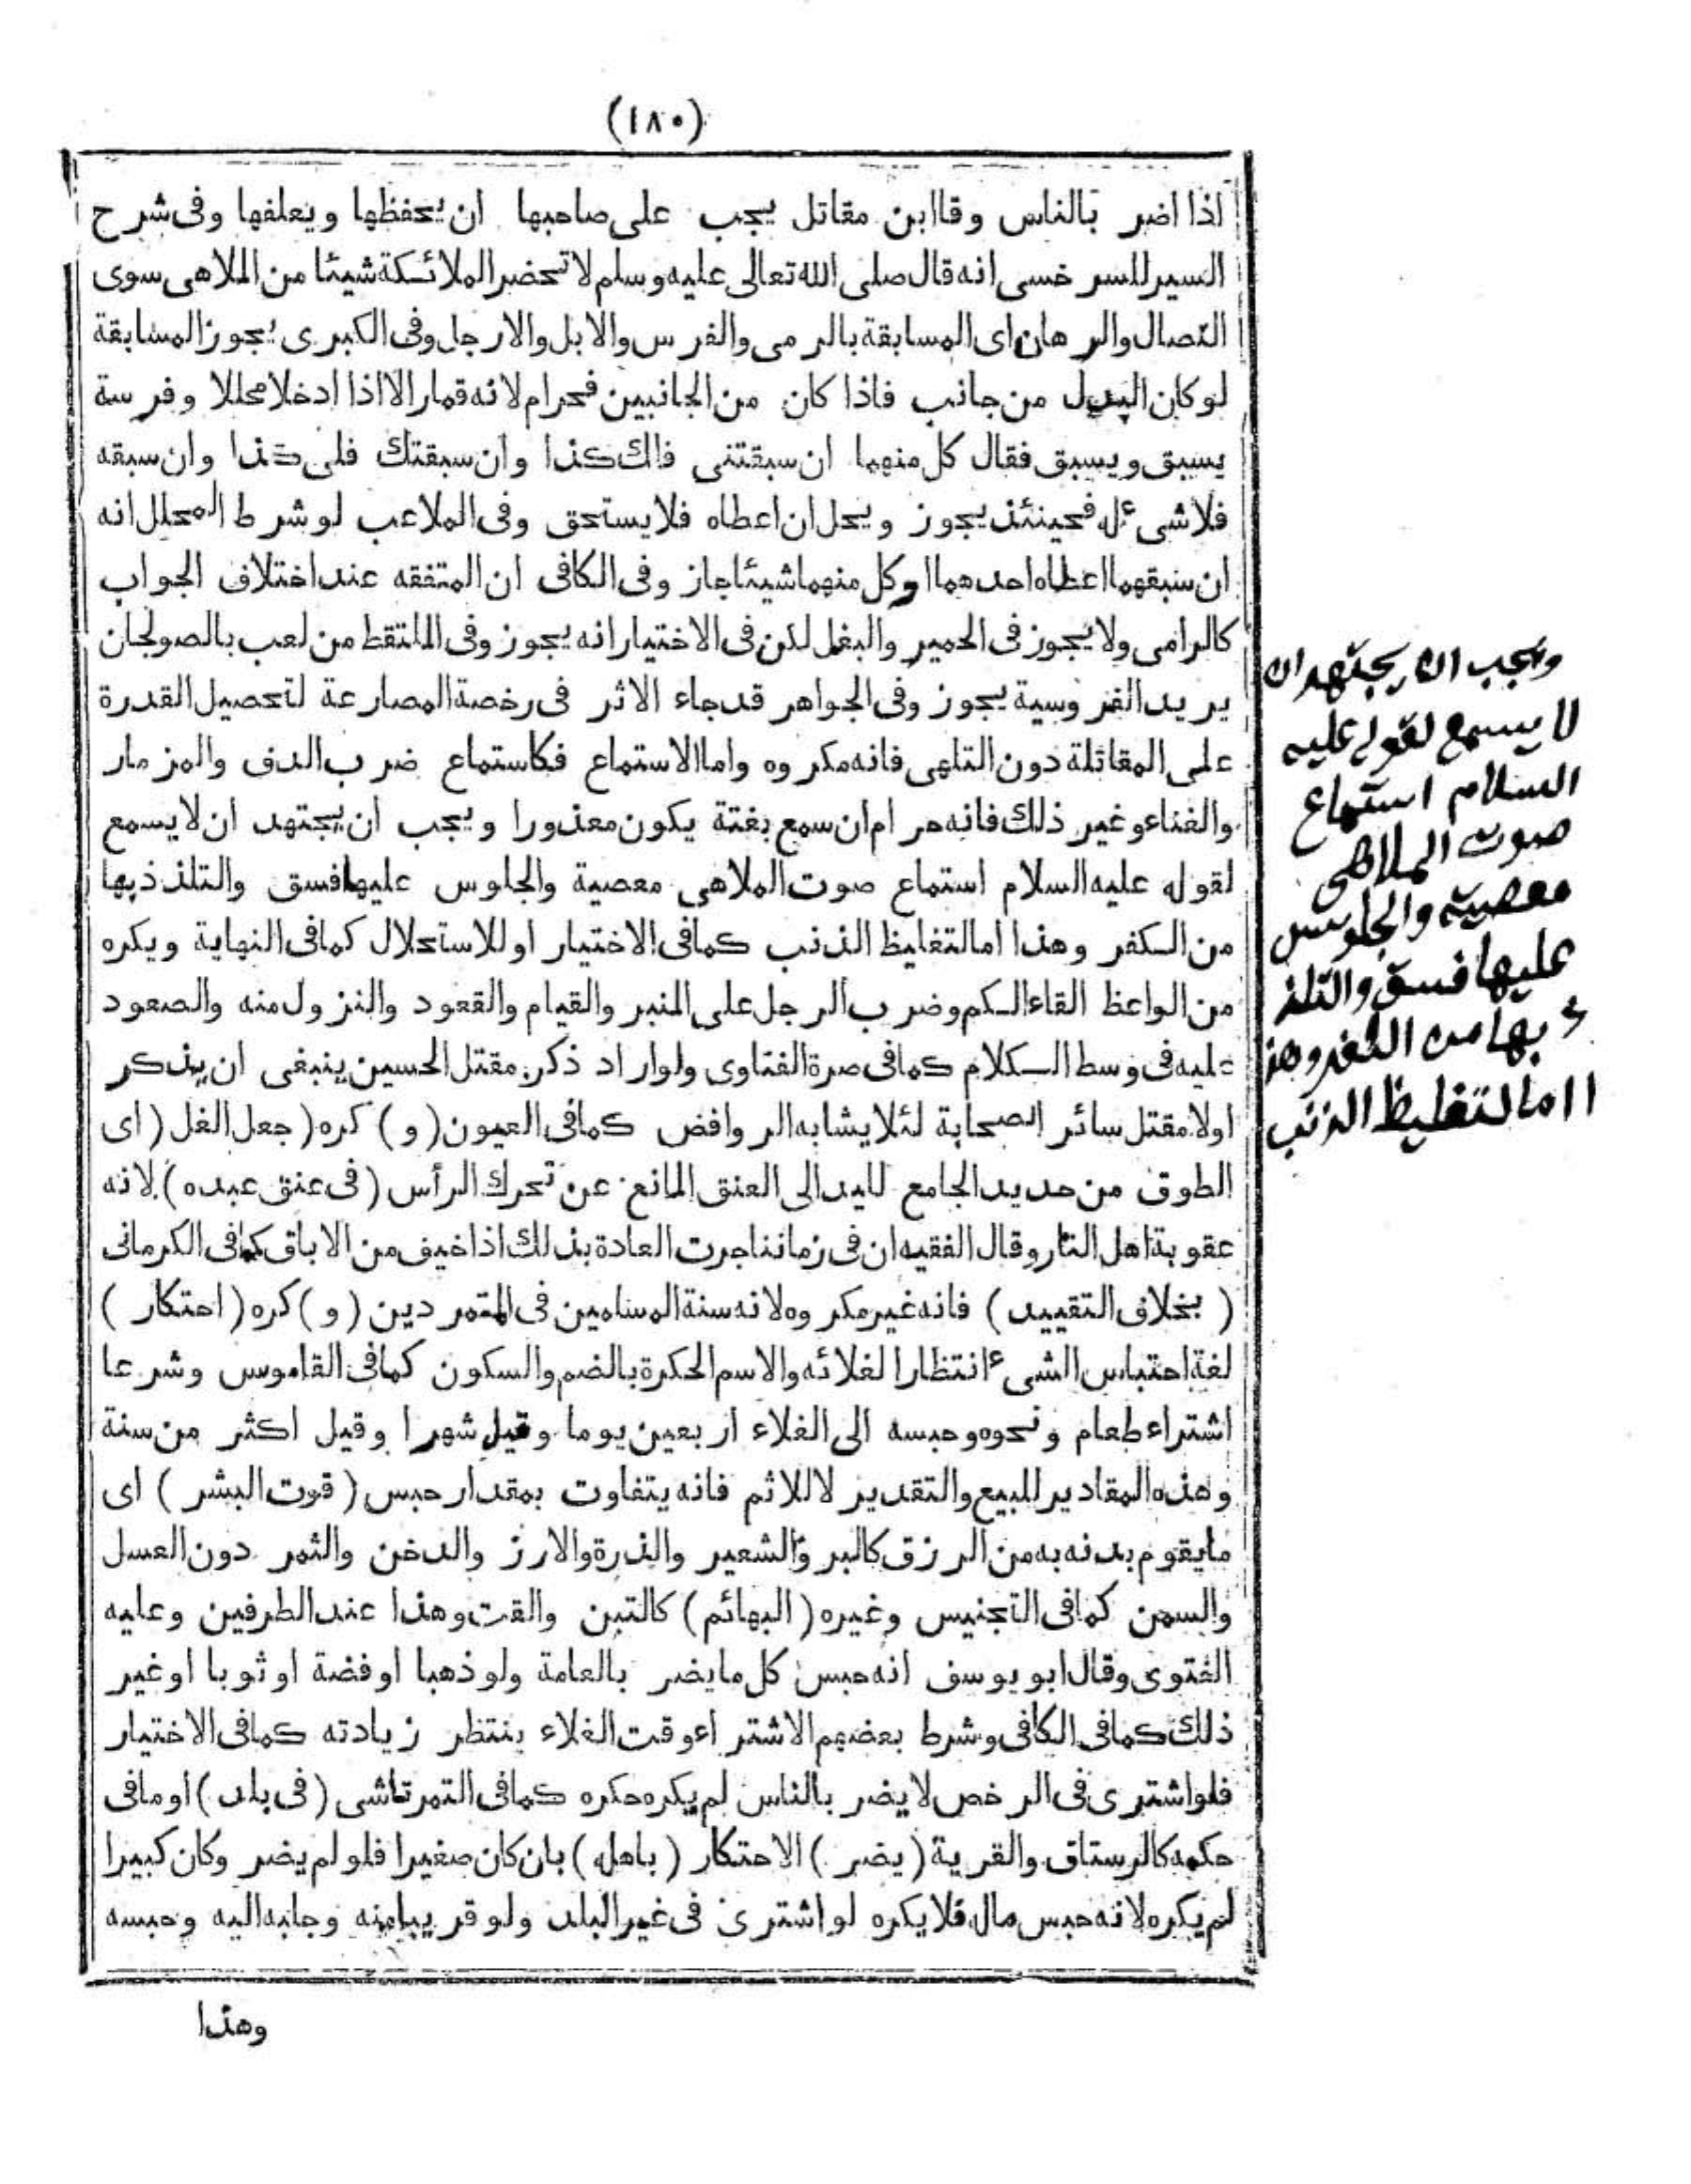 (١٨٠)
اذا اضر بالناس وقاابن مقاتل يجب على صاحبها ان يحفظها ويعلفها وفى شرح
السير للسرخسى انه قال صلى الله تعالى عليه وسلم لا تحضر الملائكة شيئا من الملاهى سوى
النصال والرهان اى المسابقة بالرمى والفرس والابل والارجل وفى الكبرى يجوز المسابقة
لو كان البدل من جانب فاذا كان من الجانبين فحرام لانه قمار الا اذا ادخلا محللا وفرسة
يسبق ويسبق فقال كل منهما ان سبقتنى فلك كذا وان سبقتك فلى كذا وان سبقه
فلا شىء له فحينئذ يجوز ويحل ان اعطاه فلا يستحق وفى الملاعب لو شرط المحلل انه
ان سبقهما اعطاه احدهما او كل منهما شيئا جاز وفى الكافى ان المتفقه عند اختلاف الجواب
كالرامى ولا يجوز فى الحمير والبغل لكن فى الاختيار انه يجوز وفى الملتقط من لعب بالصولجان
يريد الفروسية يجوز وفى الجواهر قد جاء الاثر فى رخصة المصارعة لتحصيل القدرة
على المقاتلة دون التلهى فانه مكروه واما الاستماع فكاستماع ضرب الدف والمزمار
والغناء وغير ذلك فانه حرام ان سمع بغتة يكون معذورا ويجب ان يجتهد ان لا يسمع
لقوله عليه السلام استماع صوت الملاهى معصية والجلوس عليها فسق والتلذذ بها
من الكفر وهذا اما لتغليظ الذنب كما فى الاختيار او للاستحلال كما فى النهاية ويكره
من الواعظ القاء الكم وضرب الرجل على المنبر والقيام والقعود والنزول منه والصعود
عليه فى وسط الكلام كما فى صرة الفتاوى ولو اراد ذكر مقتل الحسين ينبغى ان يذكر
اولا مقتل سائر الصحابة لئلا يشابه الروافض كما فى العيون (و) كره (جعل الغل (اى
الطوق من حديد الجامع لليد الى العنق المانع عن تحرك الرأس (فى عنق عبده) لانه
عقوبة اهل النار وقال الفقيه ان فى زماننا جرت العادة بذلك اذا خيف من الاباق كما فى الكرمانى
(بخلاف التقييد) فانه غير مكروه لانه سنة المسلمين فى المتمردين (و) كره (احتكار)
لغة احتباس الشىء انتظارا لغلائه والاسم الحكرة بالضم والسكون كما فى القاموس وشرعا
اشتراء طعام ونحوه وحبسه الى الغلاء اربعين يوما وقيل شهرا وقيل اكثر من سنة
وهذه المقادير للبيع والتقدير لا للاثم فانه يتفاوت بمقدار حبس (قوت البشر) اى
ما يقوم بدنه به من الرزق كالبر والشعير والذرة والارز والدخن والثمر دون العسل
والسمن كما فى التجنيس وغيره (البهائم) كالتبن والقت وهذا عند الطرفين وعليه
الفتوى وقال ابو يوسف انه حبس كل ما يضر بالعامة ولو ذهبا او فضة او ثوبا او غير
ذلك كما فى الكافى وشرط بعضهم الاشتراء وقت الغلاء ينتظر زيادته كما فى الاختيار
فلو اشترى فى الرخص لا يضر بالناس لم يكره حكره كما فى التمرتاشى (فى بلد) او ما فى
حكمه كالرستاق والقرية (يضر) الاحتكار (باهله) بان كان صغيرا فلو لم يضر وكان كبيرا
لم يكره لانه حبس ماله فلا يكره لو اشترى فى غير البلد ولو قريبا منه وجلبه اليه وحبسه
وهذا
ويجب ان يجتهد ان
لا يسمع لقوله عليه
السلام استماع
صوت الملاهى
معصية والجلوس
عليها فسق والتلذ
ذ بها من الكفر وهذ
ا اما لتغليظ الذنب